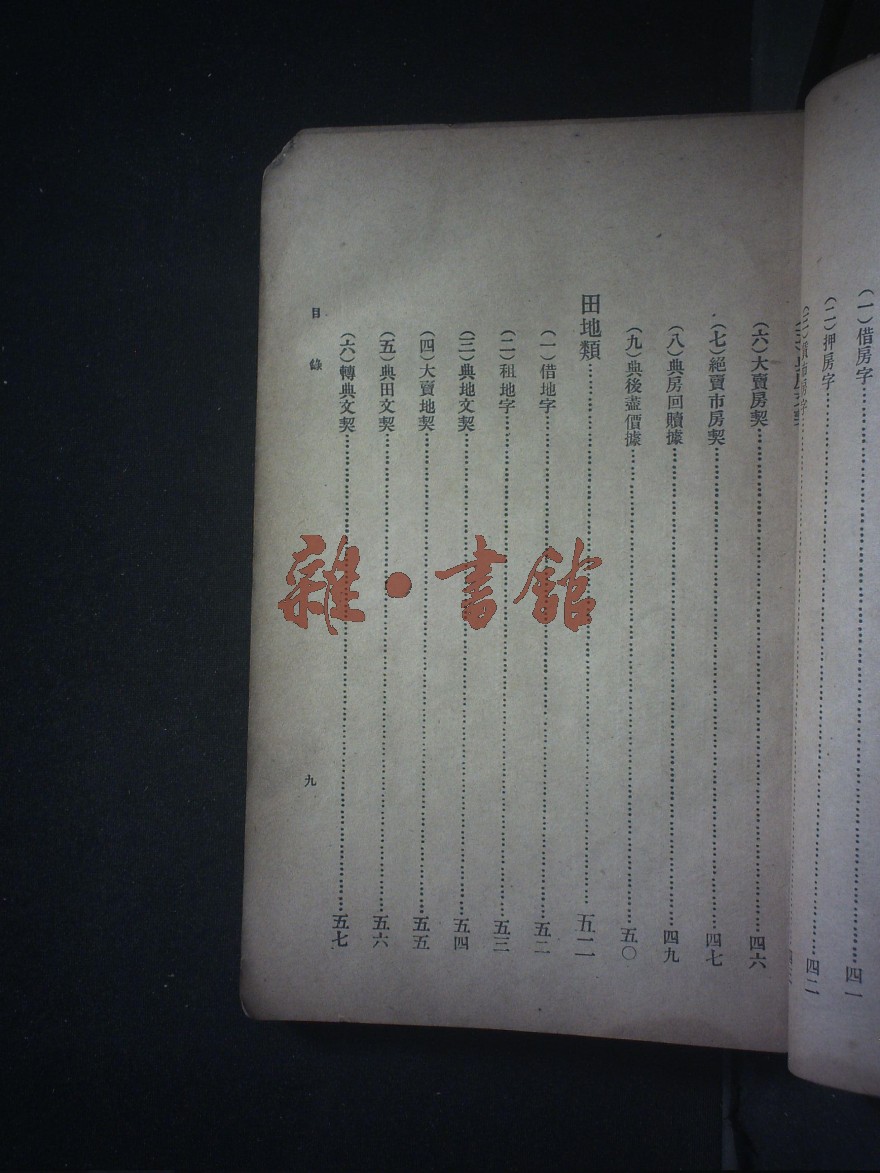 （一）借房字⋯⋯四一
（二）押房字⋯⋯四二
（六）大賣房契⋯⋯四六
（七）絕賣市房契⋯⋯四七
（八）典房回贖據⋯⋯四九
（九）典後盡價據⋯⋯五〇
田地類⋯⋯五二
（一）借地字⋯⋯五二
（二）租地字⋯⋯五三
（三）典地文契⋯⋯五四
（四）大賣地契⋯⋯五五
（五）典田文契⋯⋯五六
（六）轉典文契⋯⋯五七
目錄
九
雜·書館